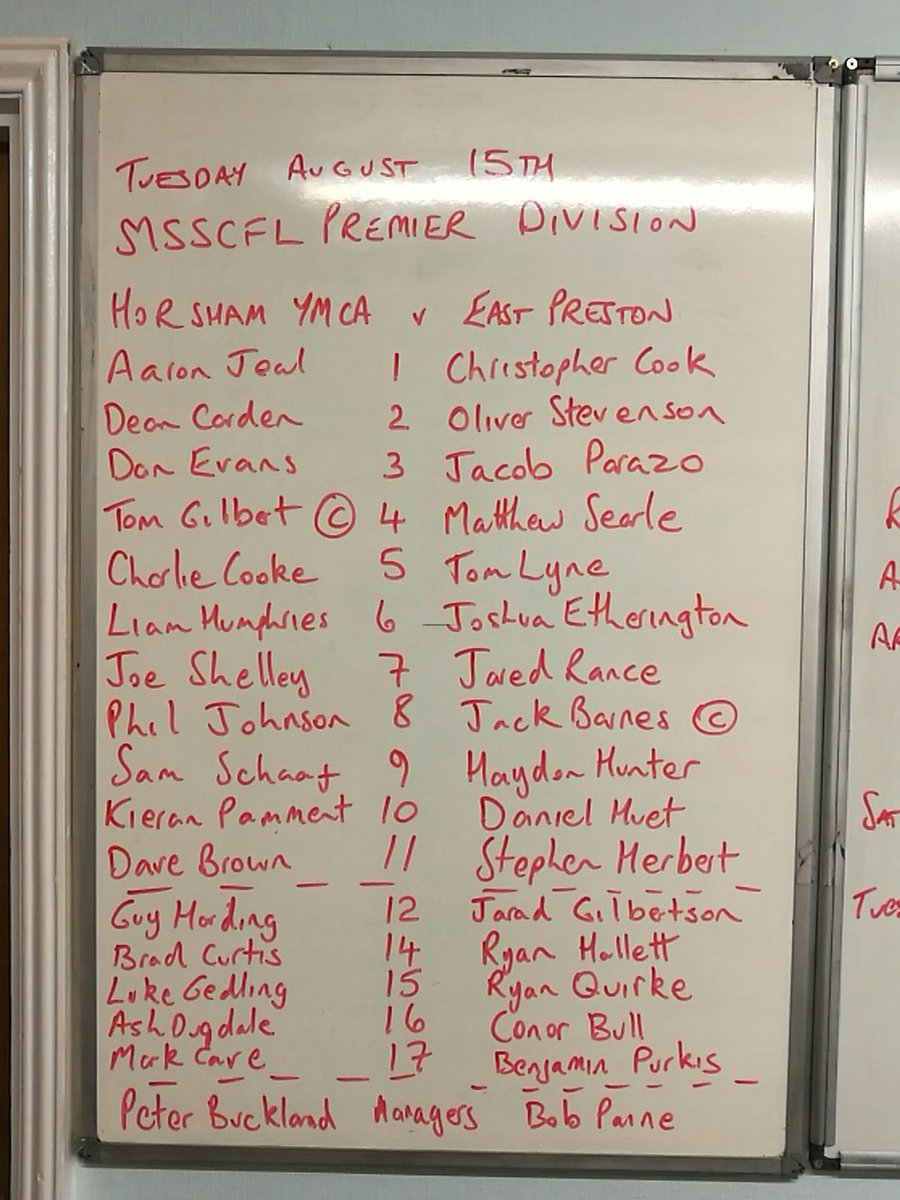 TUESDAY AUGUST 15TH
MSSCFL PREMIER DIVISION
HORSHAM YMCA v EAST PRESTON
Aaron Jeal 1 Christopher Cook
Dean Carden 2 Oliver Stevenson
Dan Evans 3 Jacob Parazo
Tom Gilbert © 4 Matthew Searle
Charlie Cooke 5 Tom Lyne
Liam Humphries 6 Joshua Etherington
Joe Shelley 7 Jared Rance
Phil Johnson 8 Jack Barnes ©
Sam Schaaf 9 Haydon Hunter
Kieran Pamment 10 Daniel Huet
Dave Brown 11 Stephen Herbert
Guy Harding 12 Jarad Gilbertson
Brad Curtis 14 Ryan Hallett
Luke Gedling 15 Ryan Quirke
Ash Dugdale 16 Conor Bull
Mark Cave 17 Benjamin Purkis
Peter Buckland Managers Bob Paine